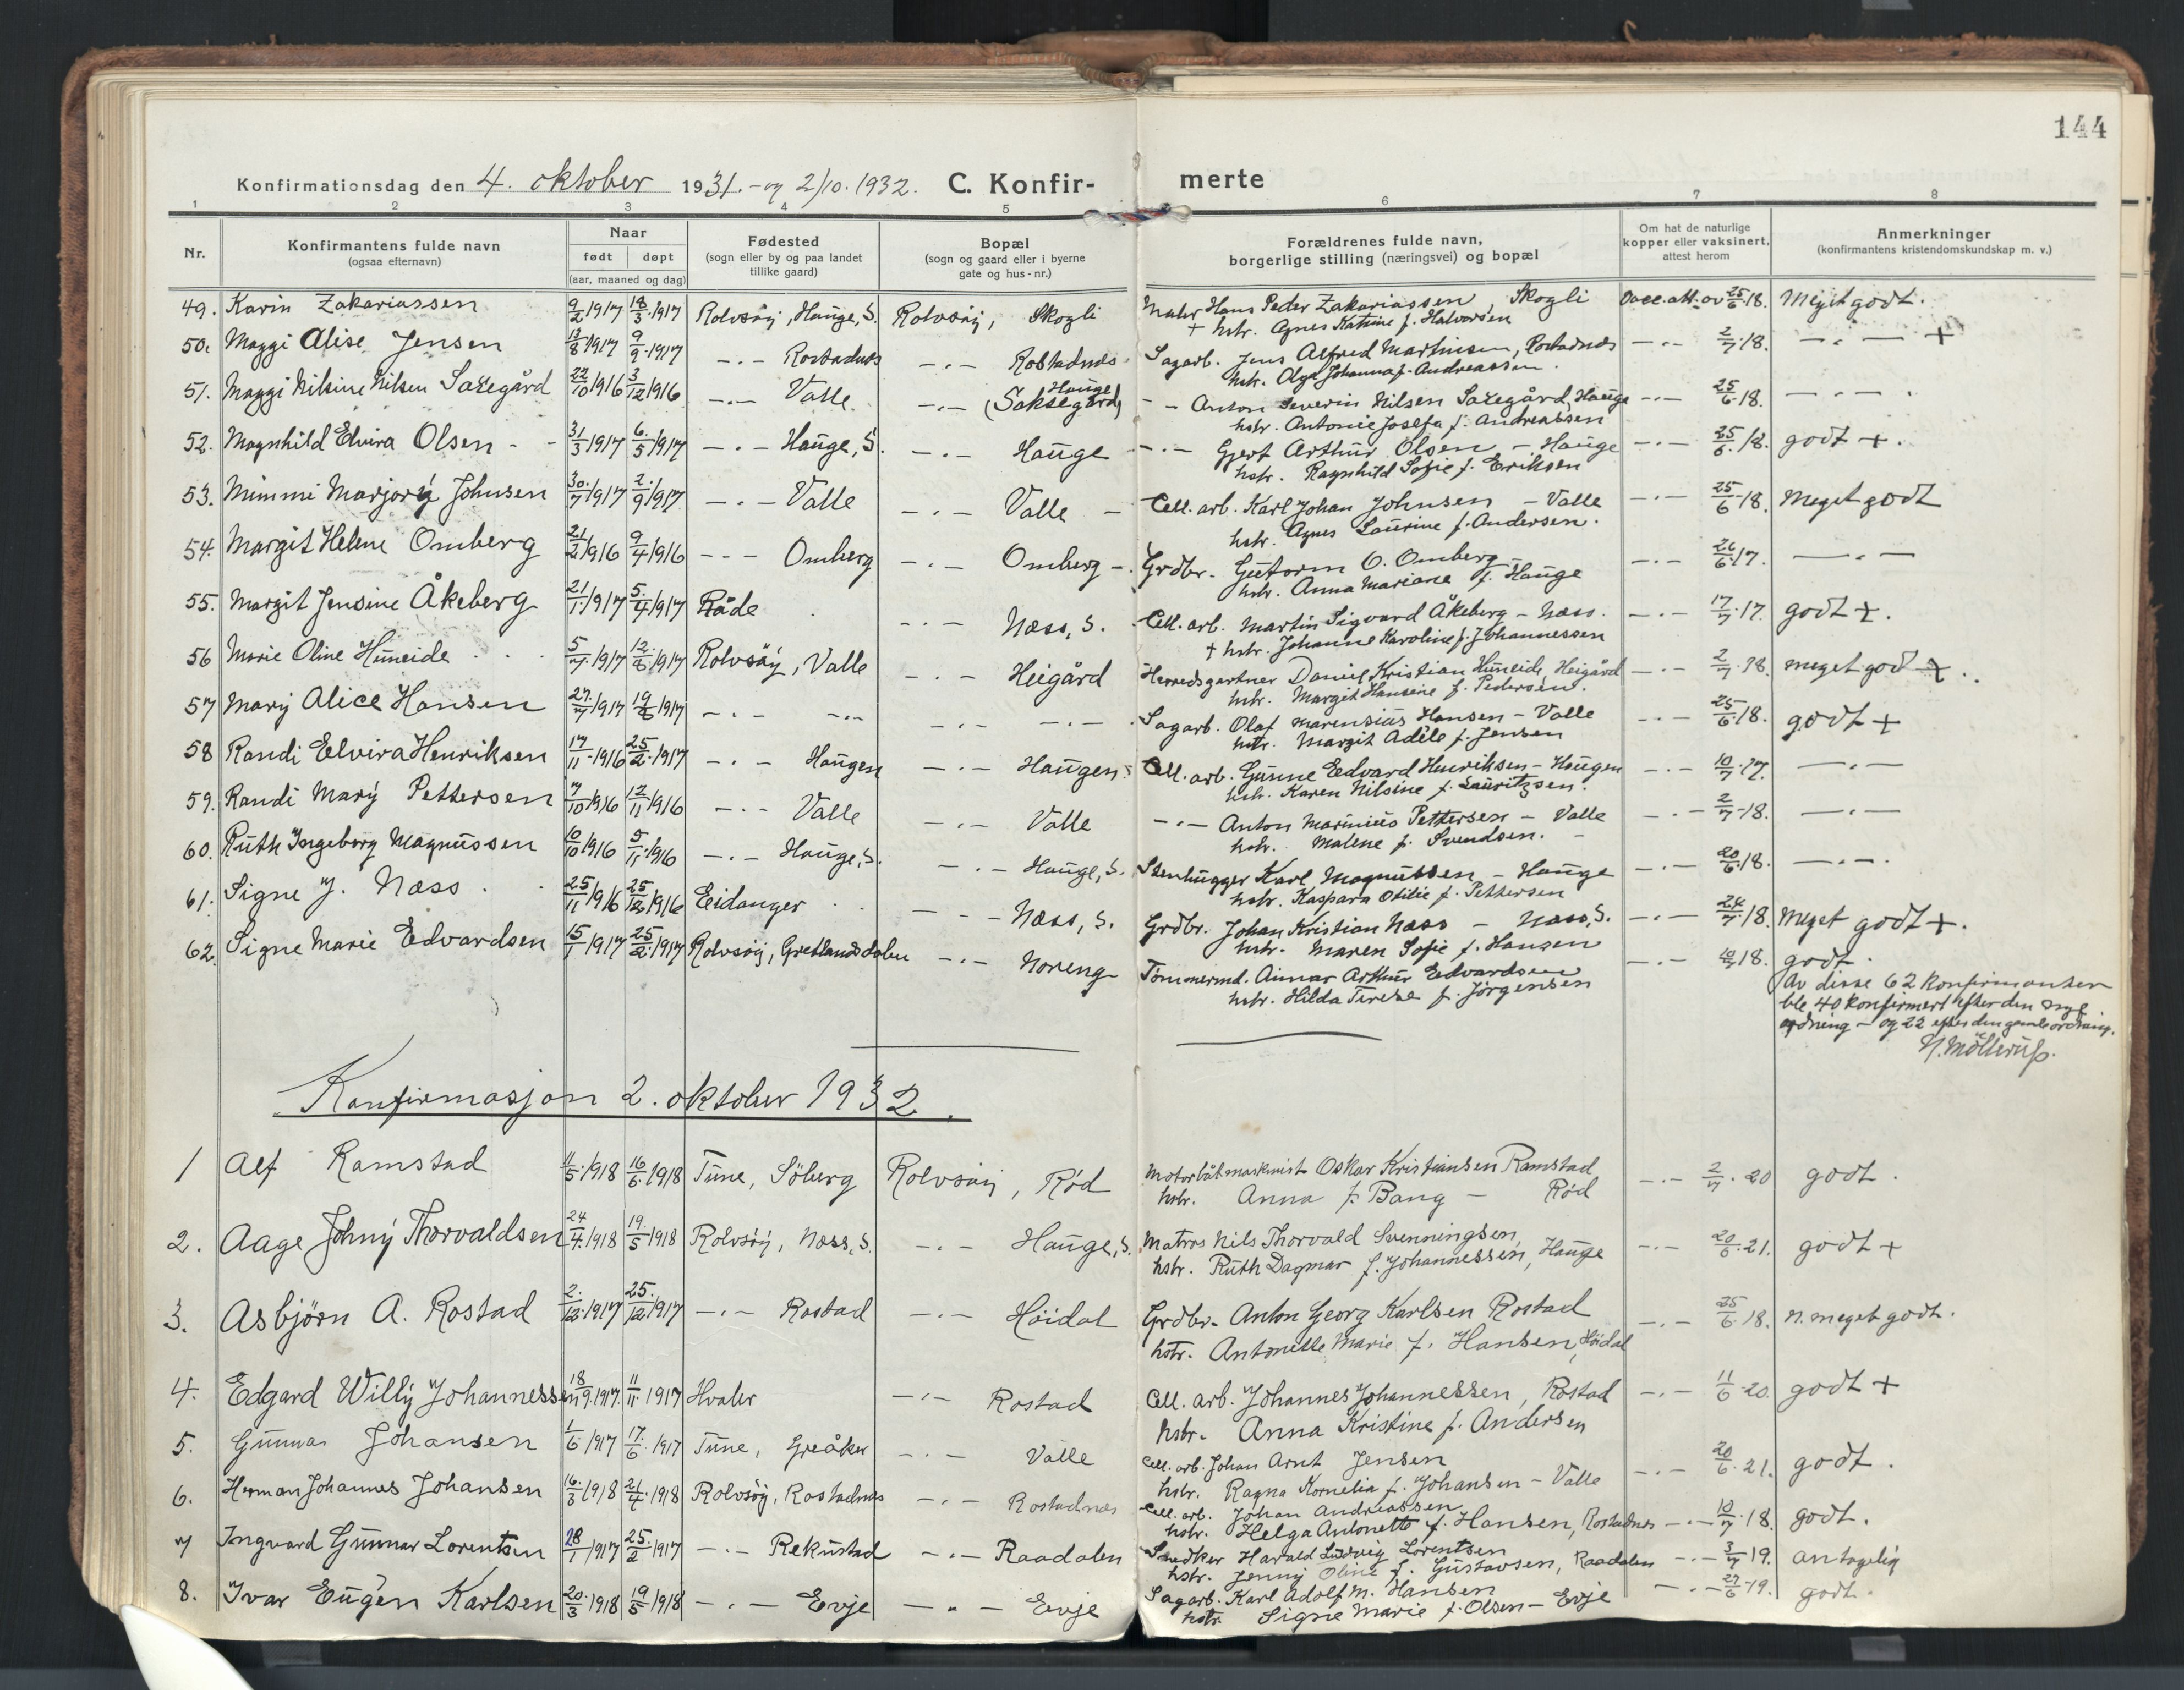 144
Konfirmationsdag den 4. oktober 1931. - og 2/10. 1932. C. Konfirmerte
1 2 3 4 5 6 7 8
Nr. Konfirmantens fulde navn (ogsaa efternavn) Naar født døpt (aar, maaned og dag) Fødested (sogn eller by og paa landet tillike gaard) Bopæl (sogn og gaard eller i byerne gate og hus-nr.) Forældrenes fulde navn, borgerlige stilling (næringsvei) og bopæl Om hat de naturlige kopper eller vaksinert, attest herom Anmerkninger (konfirmantens kristendomskundskap m. v.)
49. Karin Zakariassen 9/2 1917 18/3 1917 Rolvsöy, Hauge, S. Rolvsöy, Skogli Maler Hans Peder Zakariassen, Skogli Vacc. att. av 25/6 18. Meget godt.
+ hstr. Agnes Katrine f. Halvorsen
50. Maggi Alise Jensen 13/8 1917 9/9 1917 -.- Rostadnes -.- Rostadnes Sagarb. Jens Alfred Martinsen, Rostadnes -.- 2/7 18. -.- +
hstr. Olga Johanna f. Andreassen.
51. Maggi Nilsine Nilsen Saxegård 22/10 1916 3/12 1916 -.- Valle -.- Hauge (Saksegård) - - Anton Severin Nilsen Saxegård, Hauge -.- 25/6 18. -.-
hstr. Antonie Josefa f. Andreassen
52. Magnhild Elvira Olsen 31/3 1917 6/5 1917 -.- Hauge, S. -.- Hauge -.- Gjert Arthur Olsen - Hauge -.- 25/6 18. godt +.
hstr. Ragnhild Sofie f. Eriksen
53. Mimmi Marjory Johnsen 30/7 1917 2/9 1917 -.- Valle -.- Valle Cell. arb. Karl Johan Johnsen - Valle -.- 25/6 18. Meget godt
hstr. Agnes Laurine f. Andersen.
54. Margit Helene Omberg 21/2 1916 9/4 1916 - - - Omberg -.- Omberg Grdbr. Gutorm O. Omberg -.- 26/6 17. -.-
hstr. Anna Mariane f. Hauge
55. Margit Jensine Åkeberg 21/1 1917 5/4 1917 Råde -.- Næss, S. Cell. arb. Martin Sigvard Åkeberg - Næss. -.- 17/7 17. godt +.
+ hstr. Johanne Karoline f. Johannessen
56 Marie Oline Huneide 5/7 1917 12/8 1917 Rolvsöy, Valle -.- Heigård Herredsgartner Daniel Kristian Huneide, Heigård -.- 2/7 18. meget godt +.
hstr. Margit Hansine f. Pedersen.
57 Mary Alice Hansen 27/7 1917 19/8 1917 -.- -.- -.- -.- Sagarb. Olaf Marensius Hansen - Valle -.- 25/6 18. godt +
hstr. Margit Adéle f. Jensen
58 Randi Elvira Henriksen 17/11 1916 25/2 1917 -.- Haugen -.- Haugen Cell. arb. Gunne Edvard Henriksen - Haugen -.- 10/7 17. -.-
hstr. Karen Nilsine f. Lauritzsen.
59. Randi Mary Pettersen 7/10 1916 12/11 1916 -.- Valle -.- Valle -.- Anton Marinius Pettersen - Valle -.- 2/7 18. -.-
hstr. Malene f. Svendsen.
60. Ruth Ingeborg Magnussen 10/10 1916 5/11 1916 -.- Hauge, S. -.- Hauge, S. Stenhugger Karl Magnussen - Hauge -.- 20/6 18. -.-.
hstr. Kaspara Otilie f. Pettersen
61. Signe J. Næss 25/11 1916 25/12 1916 Eidanger - - - Næss, S. Grdbr. Johan Kristian Næss - Næss, S. -.- 24/7 18. Meget godt +.
hstr. Maren Sofie f. Hansen
62. Signe Marie Edvardsen 15/1 1917 25/2 1917 Rolvsöy, Gretlandsdalen -.- Noreng Tömmermd. Aimar Arthur Edvardsen -.- 18. godt.
hstr. Hilda Terese f. Jörgensen
Av disse 62 konfirmanter
ble 40 konfirmert efter den nye
ordning - og 22 efter den gamle ordning.
N. Möllerup.
Konfirmasjon 2. oktober 1932.
1 Alf Ramstad 11/5 1918 16/6 1918 Tune, Söberg Rolvsöy, Rød Motorbåtmaskinist Oskar Kristiansen Ramstad -.- 2/7 20 godt.
hstr. Anna f. Bang - Rød
2. Aage Johny Thorvaldsen 24/4 1918 19/5 1918 Rolvsöy, Næss, S. -.- Hauge, S. Matros Nils Thorvald Svenningsen, -.- 20/6 21. godt +
hstr. Ruth Dagmar f. Johannessen, Hauge
3. Asbjörn A. Rostad 2/12 1917 25/12 1917 -.- Rostad -.- Höidal Grdbr. Anton Georg Karlsen Rostad -.- 25/6 18. n. meget godt.
hstr. Antonette Marie f. Hansen, Höidal
4. Edgard Willy Johannessen 18/9 1917 11/11 1917 Hvaler -.- Rostad Cell. arb. Johannes Johannessen, Rostad -.- 11/6 20. godt +
hstr. Anna Kristine f. Andersen
5. Gunnar Johansen 1/6 1917 17/6 1917 Tune, Greåker -.- Valle Cell. arb. Johan Arnt Jensen -.- 20/6 21. godt.
hstr. Ragna Kornelia f. Johansen - Valle
6. Herman Johannes Johansen 16/3 1918 21/4 1918 Rolvsöy, Rostadnes -.- Rostadnes Cell. arb. Johan Andreassen -.- 10/7 18. godt.
hstr. Helga Antonette f. Hansen, Rostadnes
7 Ingvard Gunnar Lorentsen 28/1 1917 25/2 1917 -.- Rekustad -.- Raadalen Snedker Harald Ludvig Lorentsen -.- 3/7 19. antagelig
hstr. Jenny Oline f. Gustavsen, Raadalen
8. Ivar Eugén Karlsen 20/3 1918 19/5 1918 -.- Evje -.- Evje Sagarb. Karl Adolf M. Hansen -.- 27/6 19. godt.
hstr. Signe Marie f. Olsen - Evje